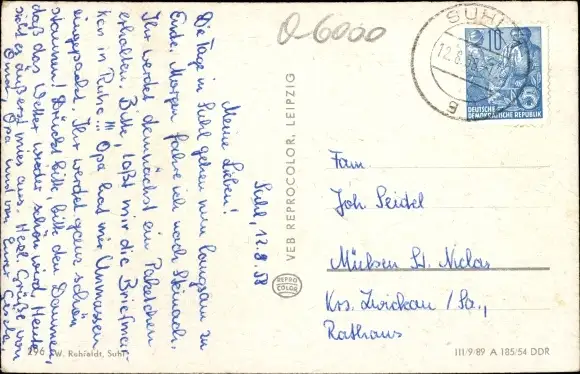 Suhl, 12.8.58
Meine Lieben!
Die Tage in Suhl gehen nun langsam zu
Ende. Morgen fahre ich nach Steinach.
Ihr werdet demnächst ein Päckchen
erhalten. Bitte, laßt mir die Briefmar-
ken in Ruhe!!! Opa hat mir Unmassen
eingepackt. Ihr werdet ganz schön
staunen! Drückt bitte, bitte den Daumen,
daß das Wetter wieder schön wird. Heute
sieht es äußerst mies aus. Herzl. Grüße von
Omi, Opa und von Eurer Gisela.
296 W. Ruhfaldt, Suhl
VEB REPROCOLOR, LEIPZIG
REPRO
COLOR
O-6000
SUHL
12.8.58
g
10
DEUTSCHE
DEMOKRATISCHE REPUBLIK
5
Fam
Joh. Seidel
Mülsen St. Niclas
Krs. Zwickau / Sa.,
Rathaus
III/9/89 A 185/54 DDR